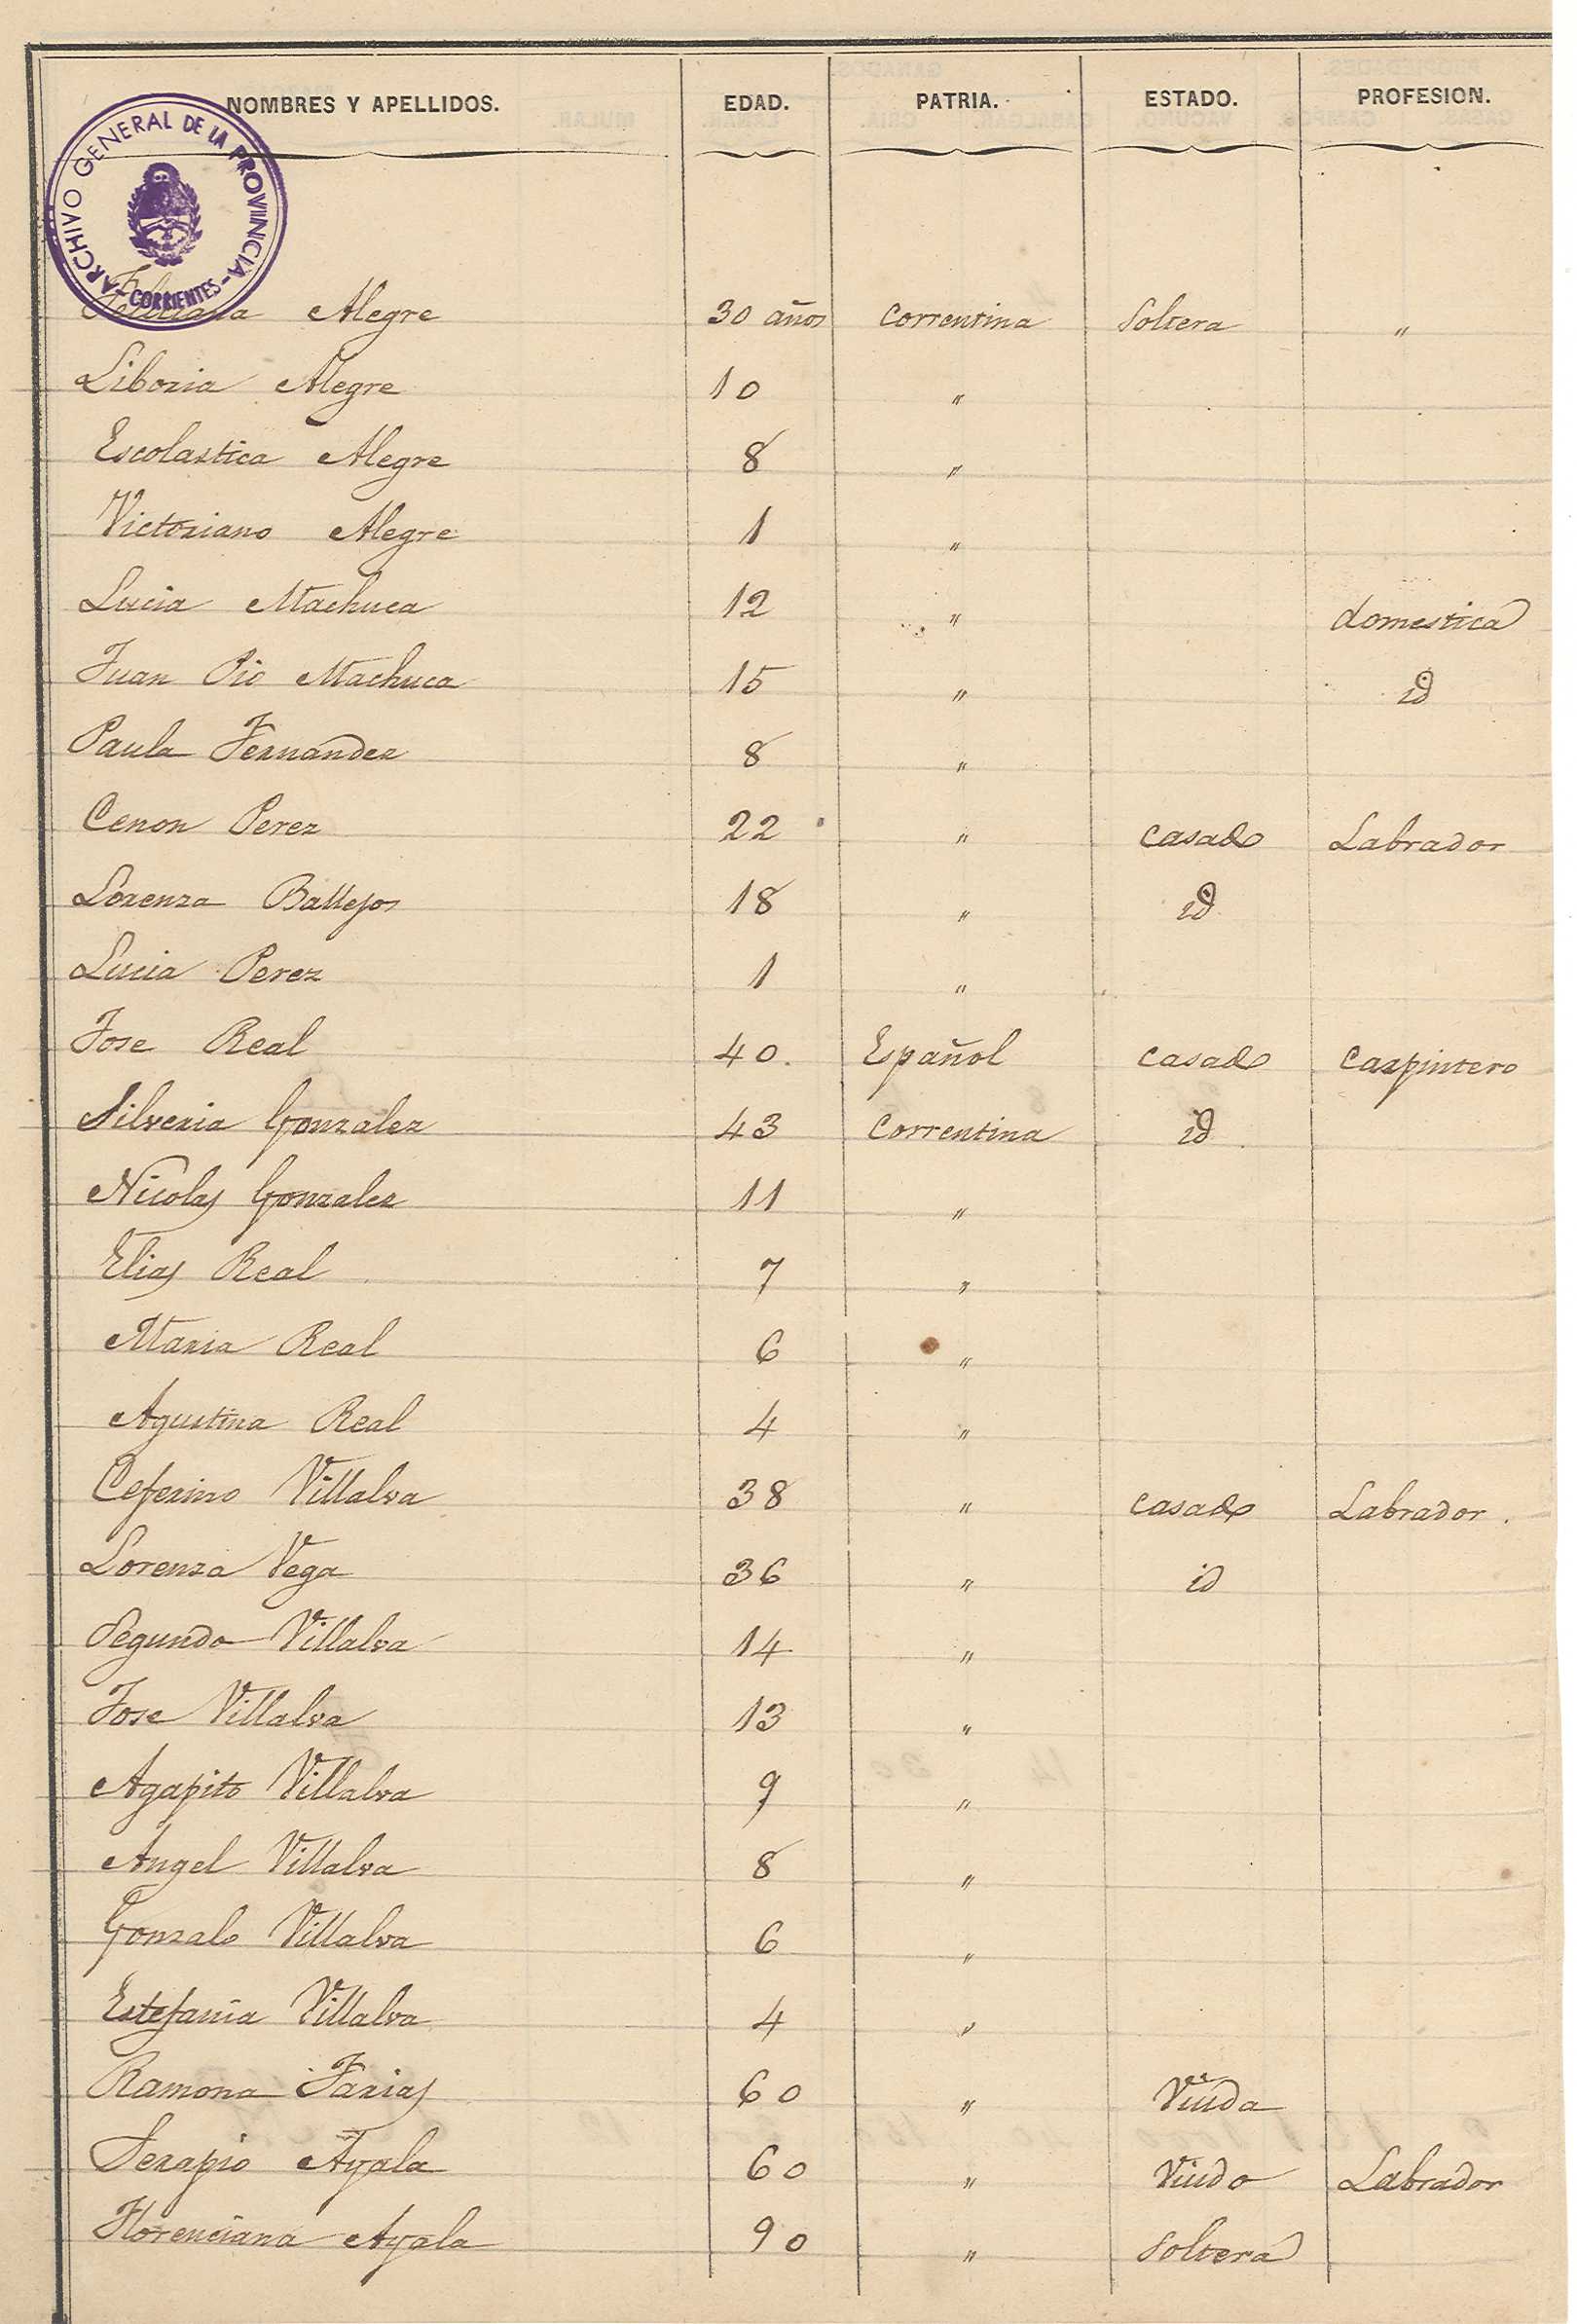 NOMBRES Y APELLIDOS. EDAD. PATRIA. ESTADO. PROFESION.
ARCHIVO GENERAL DE LA PROVINCIA - CORRIENTES -
Feliciana Alegre 30 años Correntina Soltera "
Liboria Alegre 10 "
Escolastica Alegre 8 "
Victoriano Alegre 1 "
Lucia Machuca 12 " domestica
Juan Pio Machuca 15 " id
Paula Fernandez 8 "
Cenon Perez 22 " casado Labrador
Lorenza Ballejos 18 " id
Lucia Perez 1 "
Jose Real 40. Español casado Carpintero
Silveria Gonzalez 43 Correntina id
Nicolas Gonzalez 11 "
Elias Real 7 "
Maria Real 6 "
Agustina Real 4 "
Ceferino Villalva 38 " casado Labrador.
Lorenza Vega 36 " id
Segundo Villalva 14 "
Jose Villalva 13 "
Agapito Villalva 9 "
Angel Villalva 8 "
Gonzalo Villalva 6 "
Estefania Villalva 4 "
Ramona Farias 60 " Viuda
Serapio Ayala 60 " Viudo Labrador
Florenciana Ayala 90 " Soltera